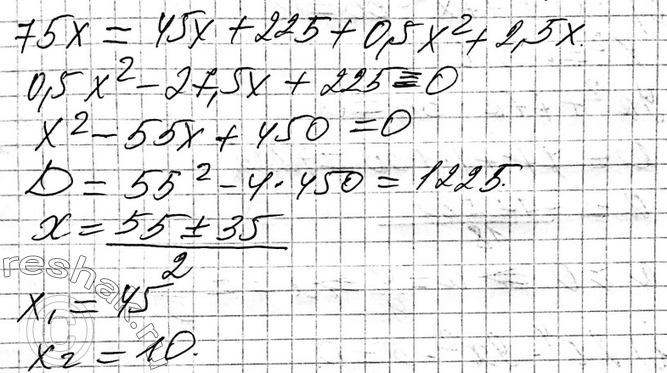 75x = 45x + 225 + 0,5x² + 2,5x.
0,5x² - 27,5x + 225 = 0
x² - 55x + 450 = 0
D = 55² - 4 · 450 = 1225.
x = 55 ± 35
2
x₁ = 45
x₂ = 10.
reshak.ru